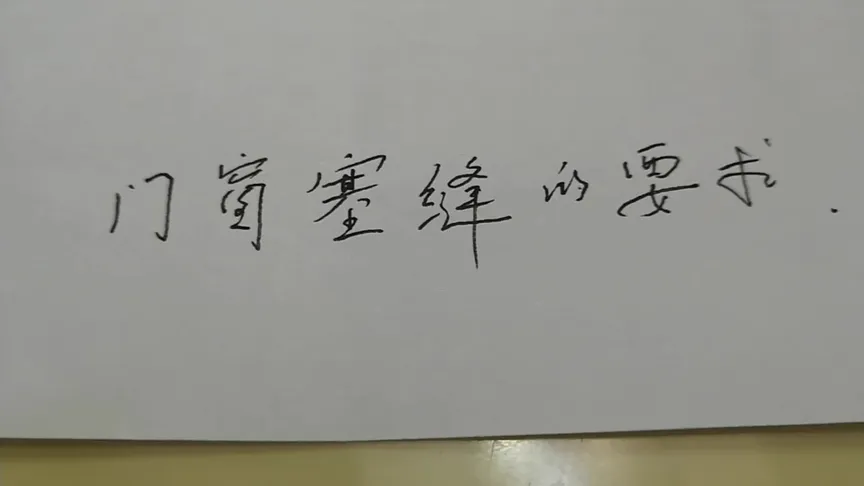 门窗塞缝的要求.